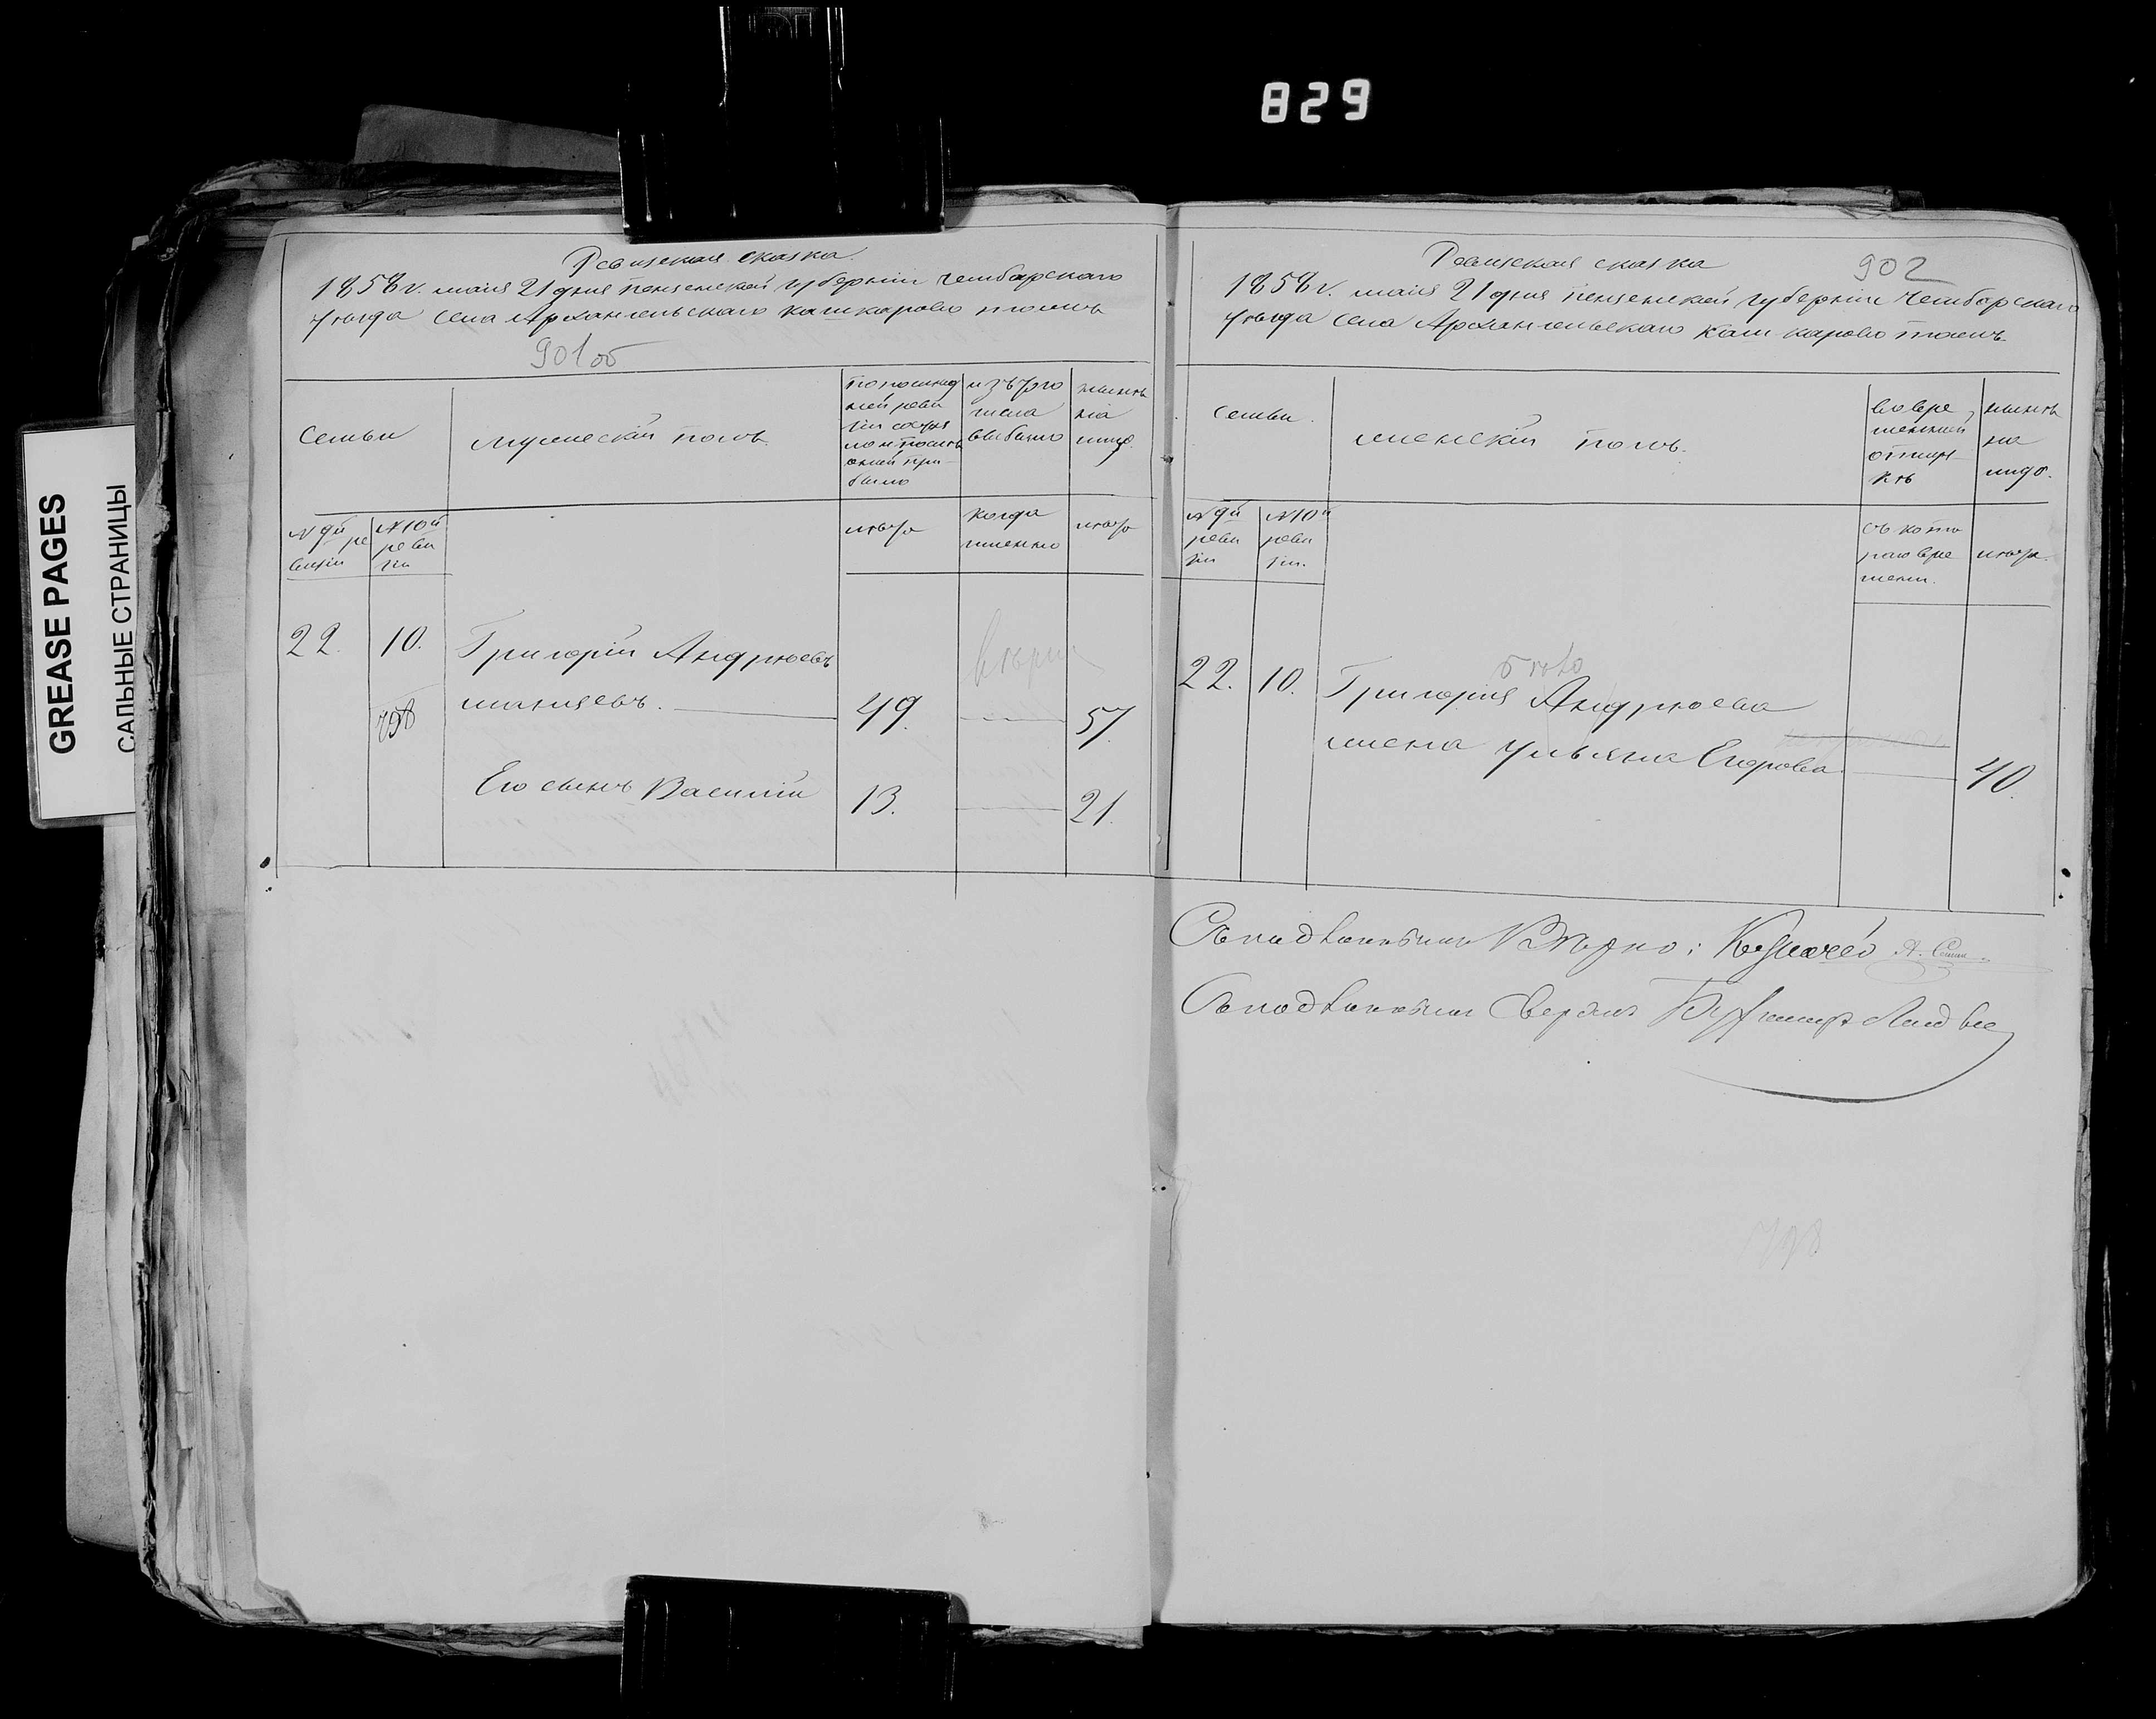 829
GREASE PAGES
САЛЬНЫЕ СТРАНИЦЫ
Ревизская сказка.
1858 г. маия 21 дня Пензенской губернии Чембарскаго
уезда села Архангельскаго Кашкарово тожъ
901об
Семьи
мужескій полъ.
по послед
ней реви
зіи состоя
ло и после
оной при
было
изъ того
числа
выбыло
ныне
на
лицо.
№ 9й ре
визіи
№ 10й
реви
зіи
лета
когда
именно
лета
22.
10.
Григорій Андреевъ
49.
57.
Его сынъ Василій
13.
21.
Ревизская сказка
902
1858 г. маия 21 дня Пензенской губерніи Чембарскаго
уезда села Архангельскаго Кашкарово тожъ.
Семьи.
женскій полъ.
во вре
менной
отлуч
ке
ныне
на
лицо.
№ 9й
реви
зіи
№ 10й
реви
зіи.
съ кото
раго вре
мени.
лета.
22.
10.
Григорія Андреева
жена Ульяна Егорова
40.
Съ подлиннымъ верно:
Съ подлиннымъ сверялъ